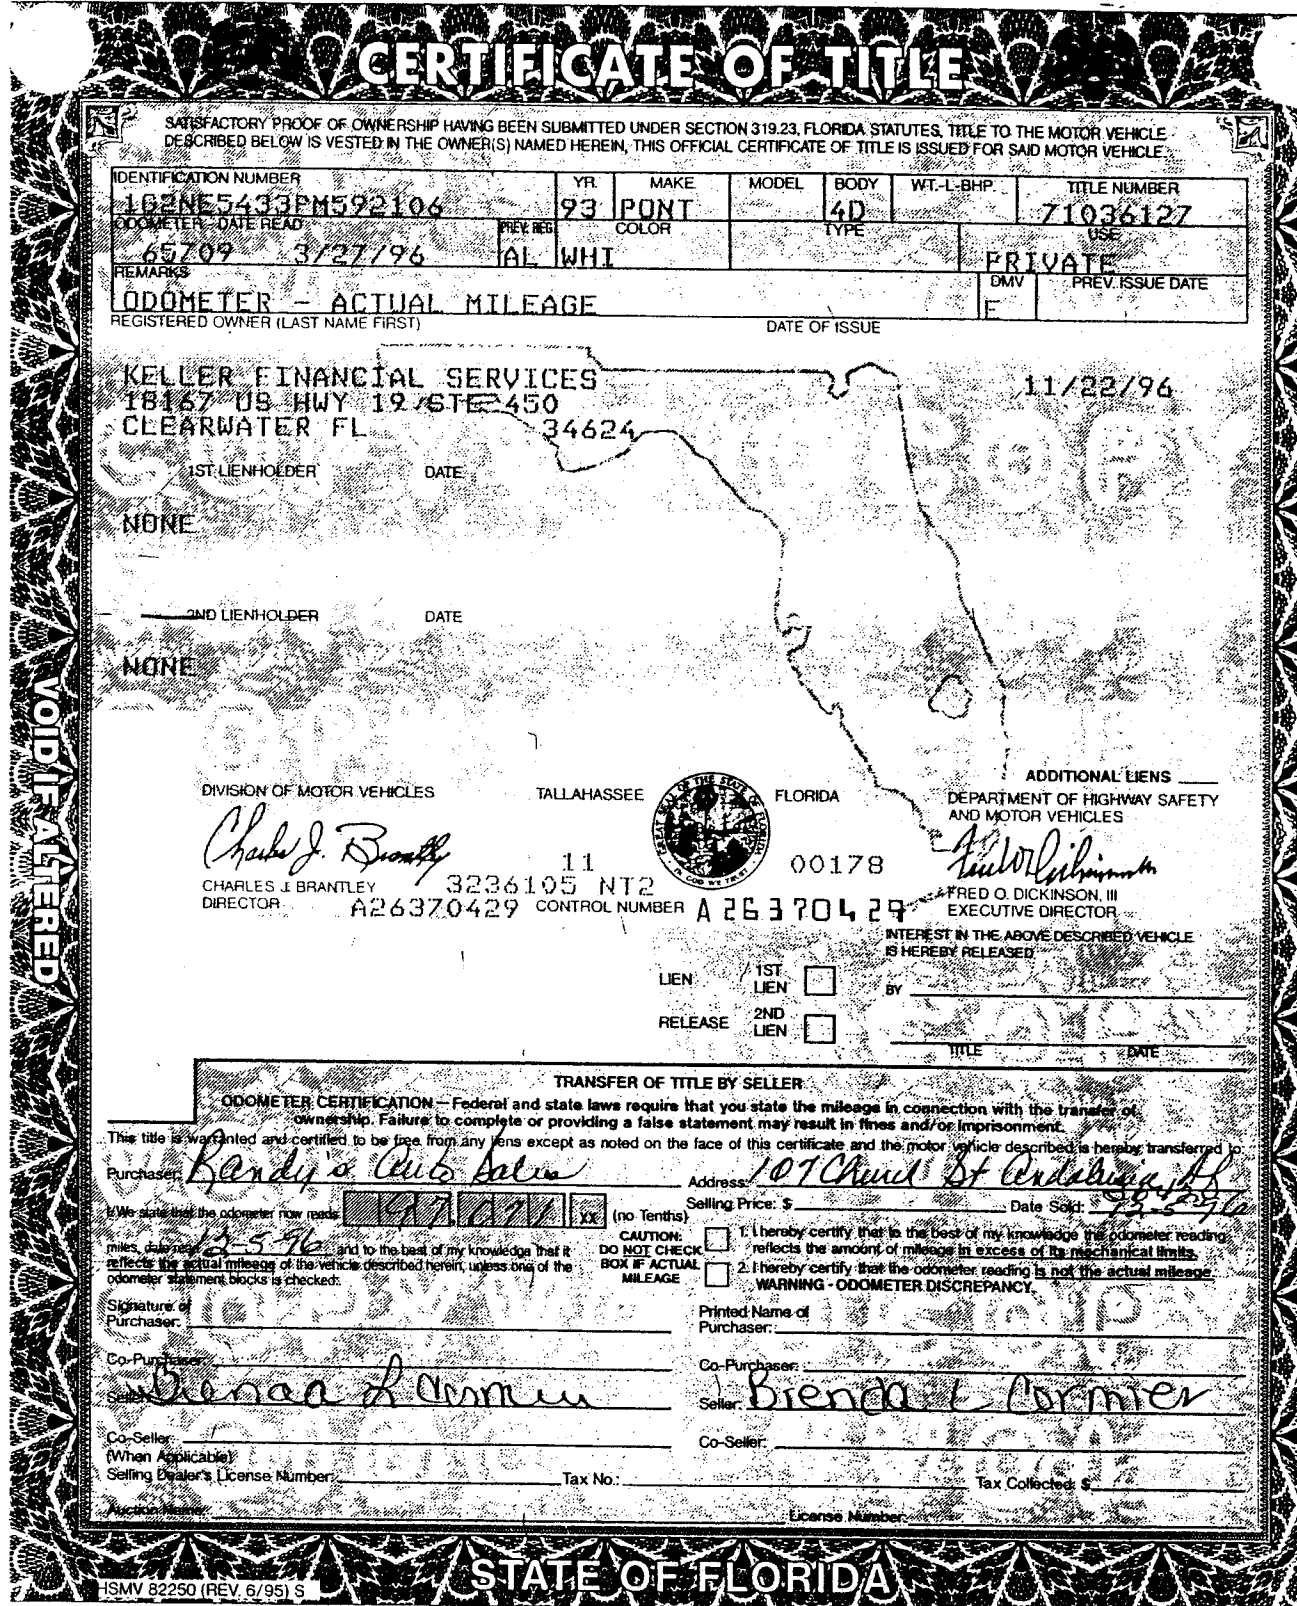 CERTIFICATE OF TITLE
SATISFACTORY PROOF OF OWNERSHIP HAVING BEEN SUBMITTED UNDER SECTION 319.23, FLORIDA STATUTES, TITLE TO THE MOTOR VEHICLE
DESCRIBED BELOW IS VESTED IN THE OWNER(S) NAMED HEREIN, THIS OFFICIAL CERTIFICATE OF TITLE IS ISSUED FOR SAID MOTOR VEHICLE.
IDENTIFICATION NUMBER YR. MAKE MODEL BODY WT.-L-BHP. TITLE NUMBER
1G2NE5433PM592106 93 PONT 4D 71036127
ODOMETER DATE READ PREV. REG COLOR TYPE USE
65709 3/27/96 AL WHI PRIVATE
REMARKS DMV PREV. ISSUE DATE
ODOMETER - ACTUAL MILEAGE
REGISTERED OWNER (LAST NAME FIRST) DATE OF ISSUE
KELLER FINANCIAL SERVICES 11/22/96
18167 US HWY 19 STE 450
CLEARWATER FL 34624
1ST LIENHOLDER DATE
NONE
2ND LIENHOLDER DATE
NONE
VOID IF ALTERED
ADDITIONAL LIENS
DIVISION OF MOTOR VEHICLES TALLAHASSEE FLORIDA DEPARTMENT OF HIGHWAY SAFETY
AND MOTOR VEHICLES
GREAT SEAL OF THE STATE OF FLORIDA
IN GOD WE TRUST
Charles J. Brantley
11 00178
CHARLES J. BRANTLEY 3236105 NT2 FRED O. DICKINSON, III
DIRECTOR A26370429 CONTROL NUMBER A 26370429 EXECUTIVE DIRECTOR
INTEREST IN THE ABOVE DESCRIBED VEHICLE
IS HEREBY RELEASED
LIEN 1ST LIEN BY
RELEASE 2ND LIEN
TITLE DATE
TRANSFER OF TITLE BY SELLER
ODOMETER CERTIFICATION — Federal and state laws require that you state the mileage in connection with the transfer of
ownership. Failure to complete or providing a false statement may result in fines and/or imprisonment.
This title is warranted and certified to be free from any liens except as noted on the face of this certificate and the motor vehicle described is hereby transferred to:
Purchaser: Randy's Auto Sales Address: 107 Church St Andalusia, Al
I/We state that the odometer now reads xx (no Tenths) Selling Price: $ Date Sold: 12-5-96
miles, date read 12-5-96 and to the best of my knowledge that it
reflects the actual mileage of the vehicle described herein, unless one of the
odometer statement blocks is checked:
CAUTION:
DO NOT CHECK
BOX IF ACTUAL
MILEAGE
1. I hereby certify that to the best of my knowledge the odometer reading
reflects the amount of mileage in excess of its mechanical limits.
2. I hereby certify that the odometer reading is not the actual mileage.
WARNING - ODOMETER DISCREPANCY.
Signature of Purchaser: Printed Name of Purchaser:
Co-Purchaser: Co-Purchaser:
Seller: Brenda L Cormier Seller: Brenda L Cormier
Co-Seller: Co-Seller:
(When Applicable)
Selling Dealer's License Number: Tax No.: Tax Collected: $
Auction Name: License Number:
STATE OF FLORIDA
HSMV 82250 (REV. 6/95) S